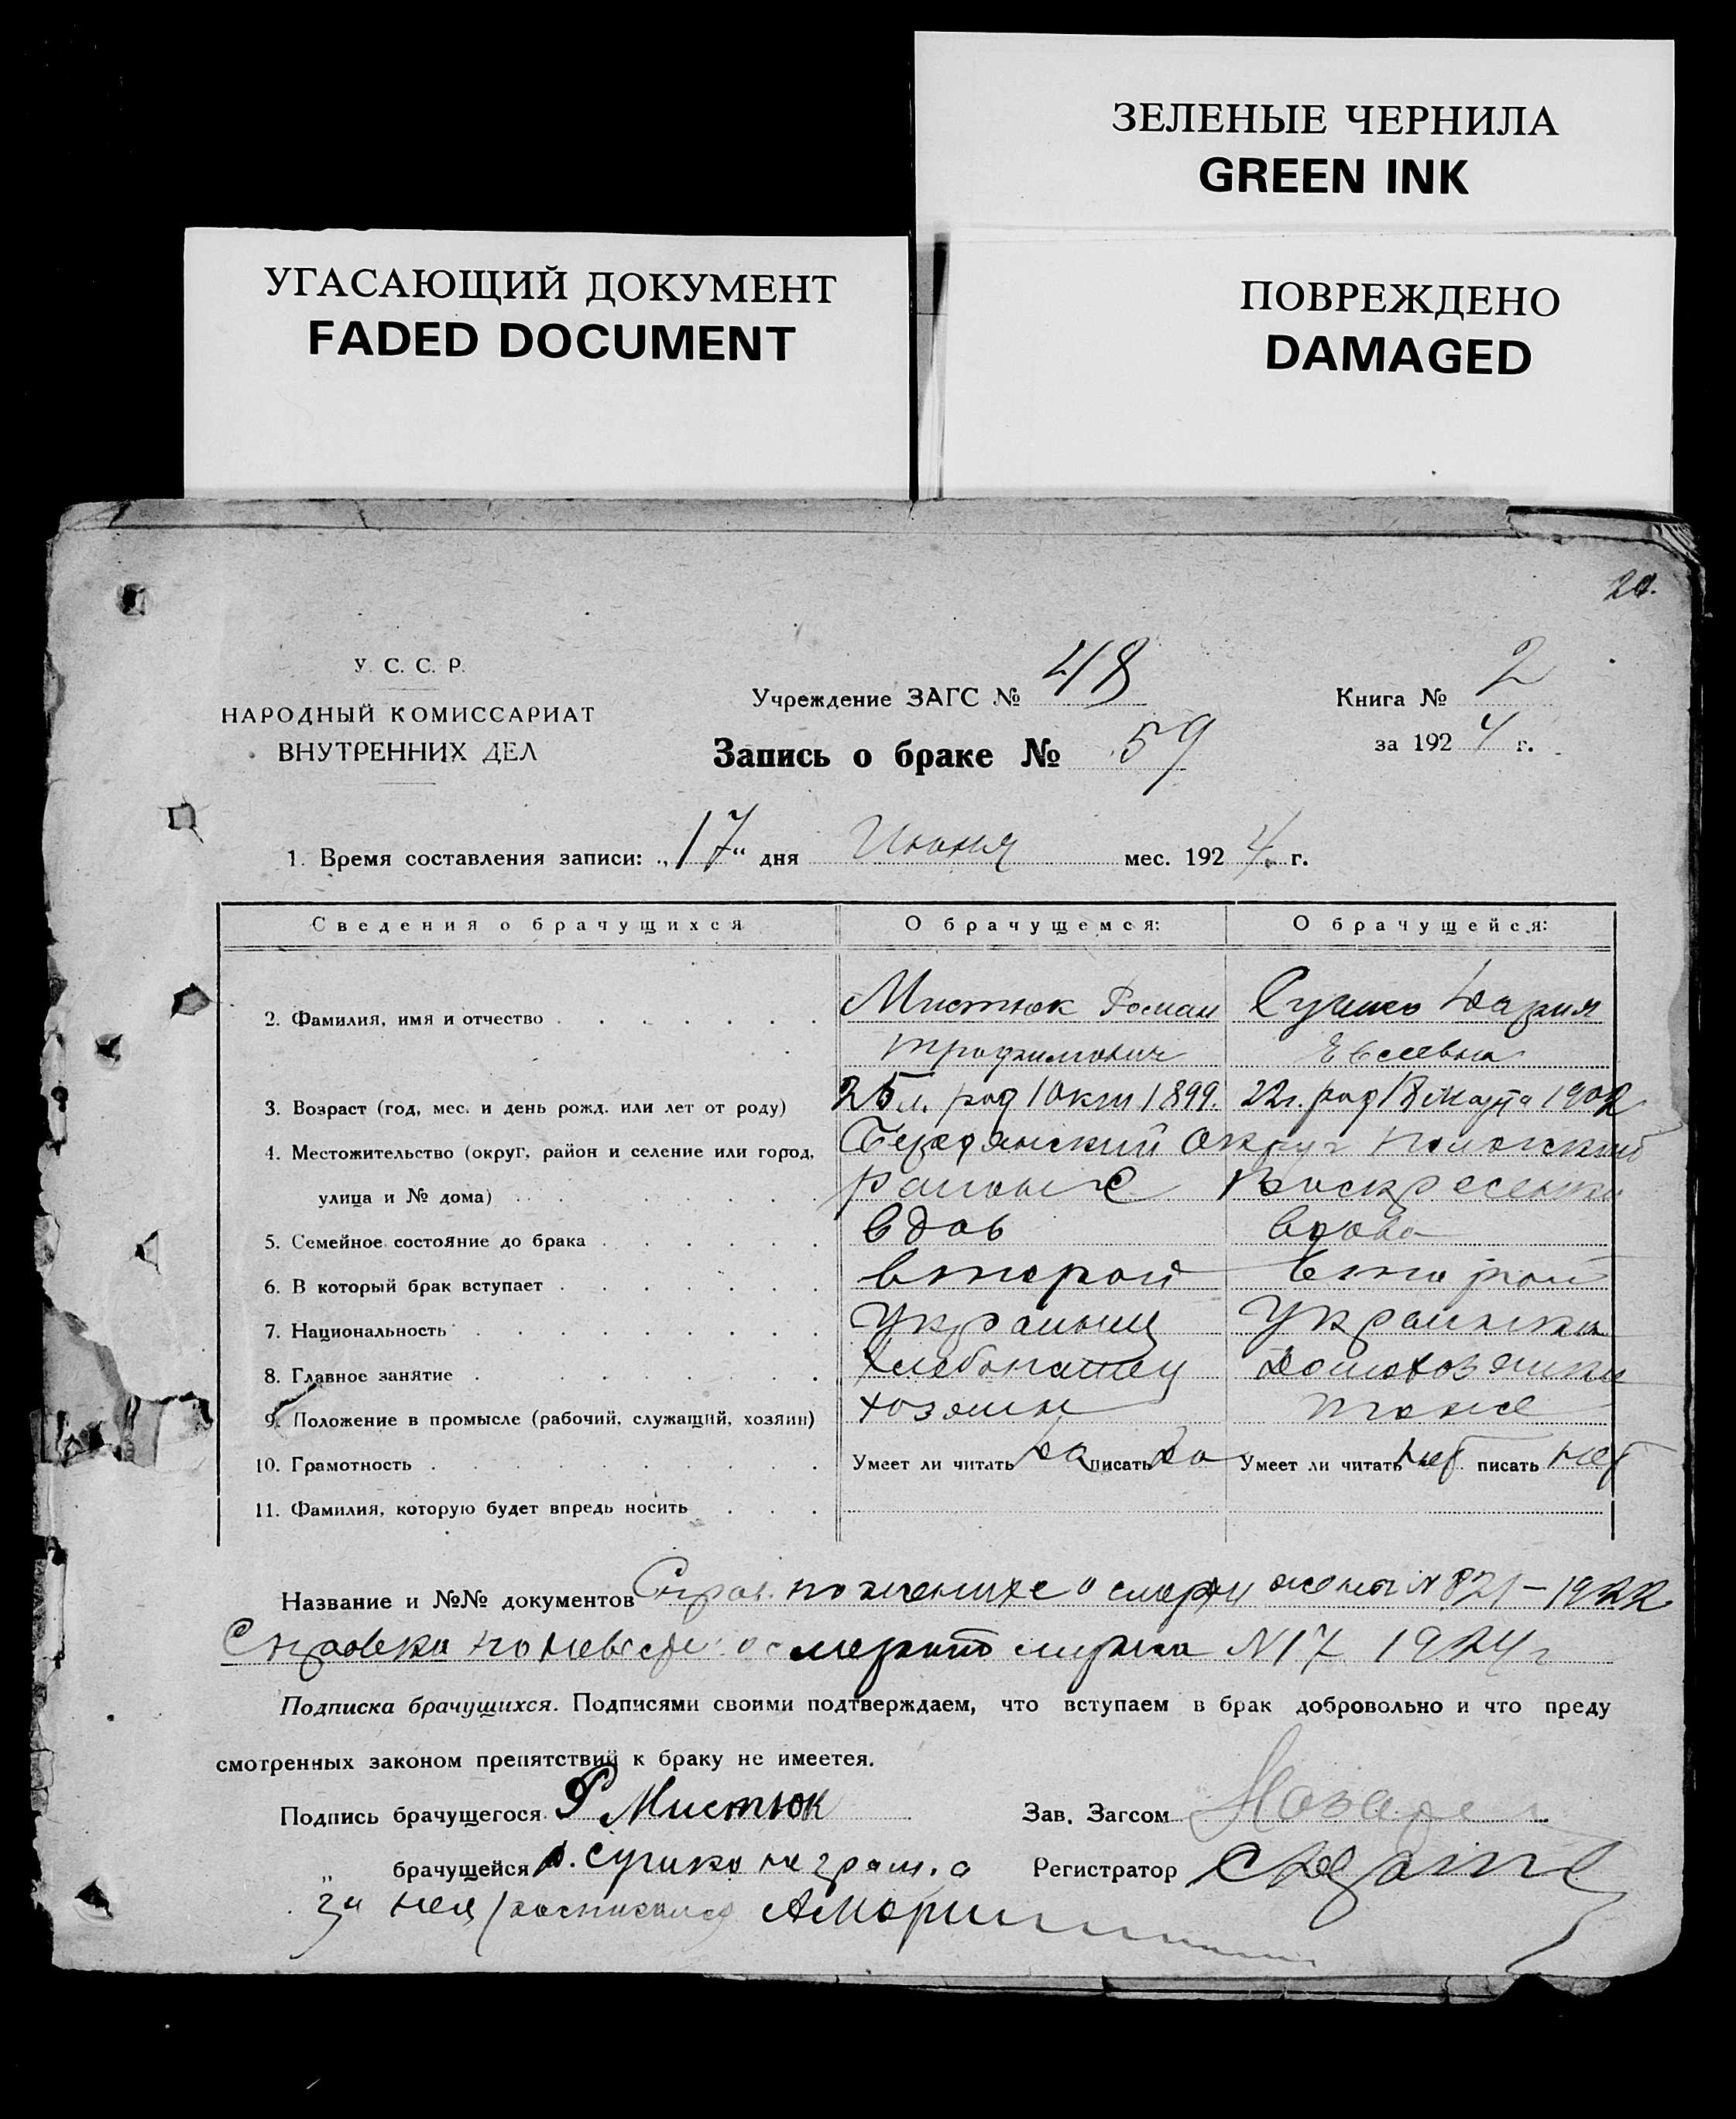 ЗЕЛЕНЫЕ ЧЕРНИЛА
GREEN INK
УГАСАЮЩИЙ ДОКУМЕНТ
FADED DOCUMENT
ПОВРЕЖДЕНО
DAMAGED
У. С. С. Р.
НАРОДНЫЙ КОМИССАРИАТ
ВНУТРЕННИХ ДЕЛ
Учреждение ЗАГС № 48
Книга № 2
Запись о браке № 59
за 1924 г.
1. Время составления записи: „17“ дня Июня мес. 1924. г.
Сведения о брачущихся О брачущемся: О брачущейся:
2. Фамилия, имя и отчество Мистюк Роман Сушко Дария
Трофимович Евсеевна
3. Возраст (год, мес. и день рожд. или лет от роду) 25 л. род 1 окт 1899. 22 г. род 18 Марта 1902
4. Местожительство (округ, район и селение или город, Бердянский Округ Пологский
улица и № дома) район с Воскресенка
5. Семейное состояние до брака вдов вдова
6. В который брак вступает второй второй
7. Национальность Украинец Украинка
8. Главное занятие хлебопашец Домохозяйка
9. Положение в промысле (рабочий, служащий, хозяин) хозяин тоже
10. Грамотность Умеет ли читать да писать да Умеет ли читать нет писать нет
11. Фамилия, которую будет впредь носить
Название и №№ документов Справ. по женихе о смерти жены N 821 – 1922
Справка по невесте о смерти мужа N 17 1924 г
Подписка брачущихся. Подписями своими подтверждаем, что вступаем в брак добровольно и что преду
смотренных законом препятствий к браку не имеетея.
Подпись брачущегося Р Мистюк Зав. Загсом
„ брачущейся Д. Сушко не грам. а Регистратор
за нея росписался